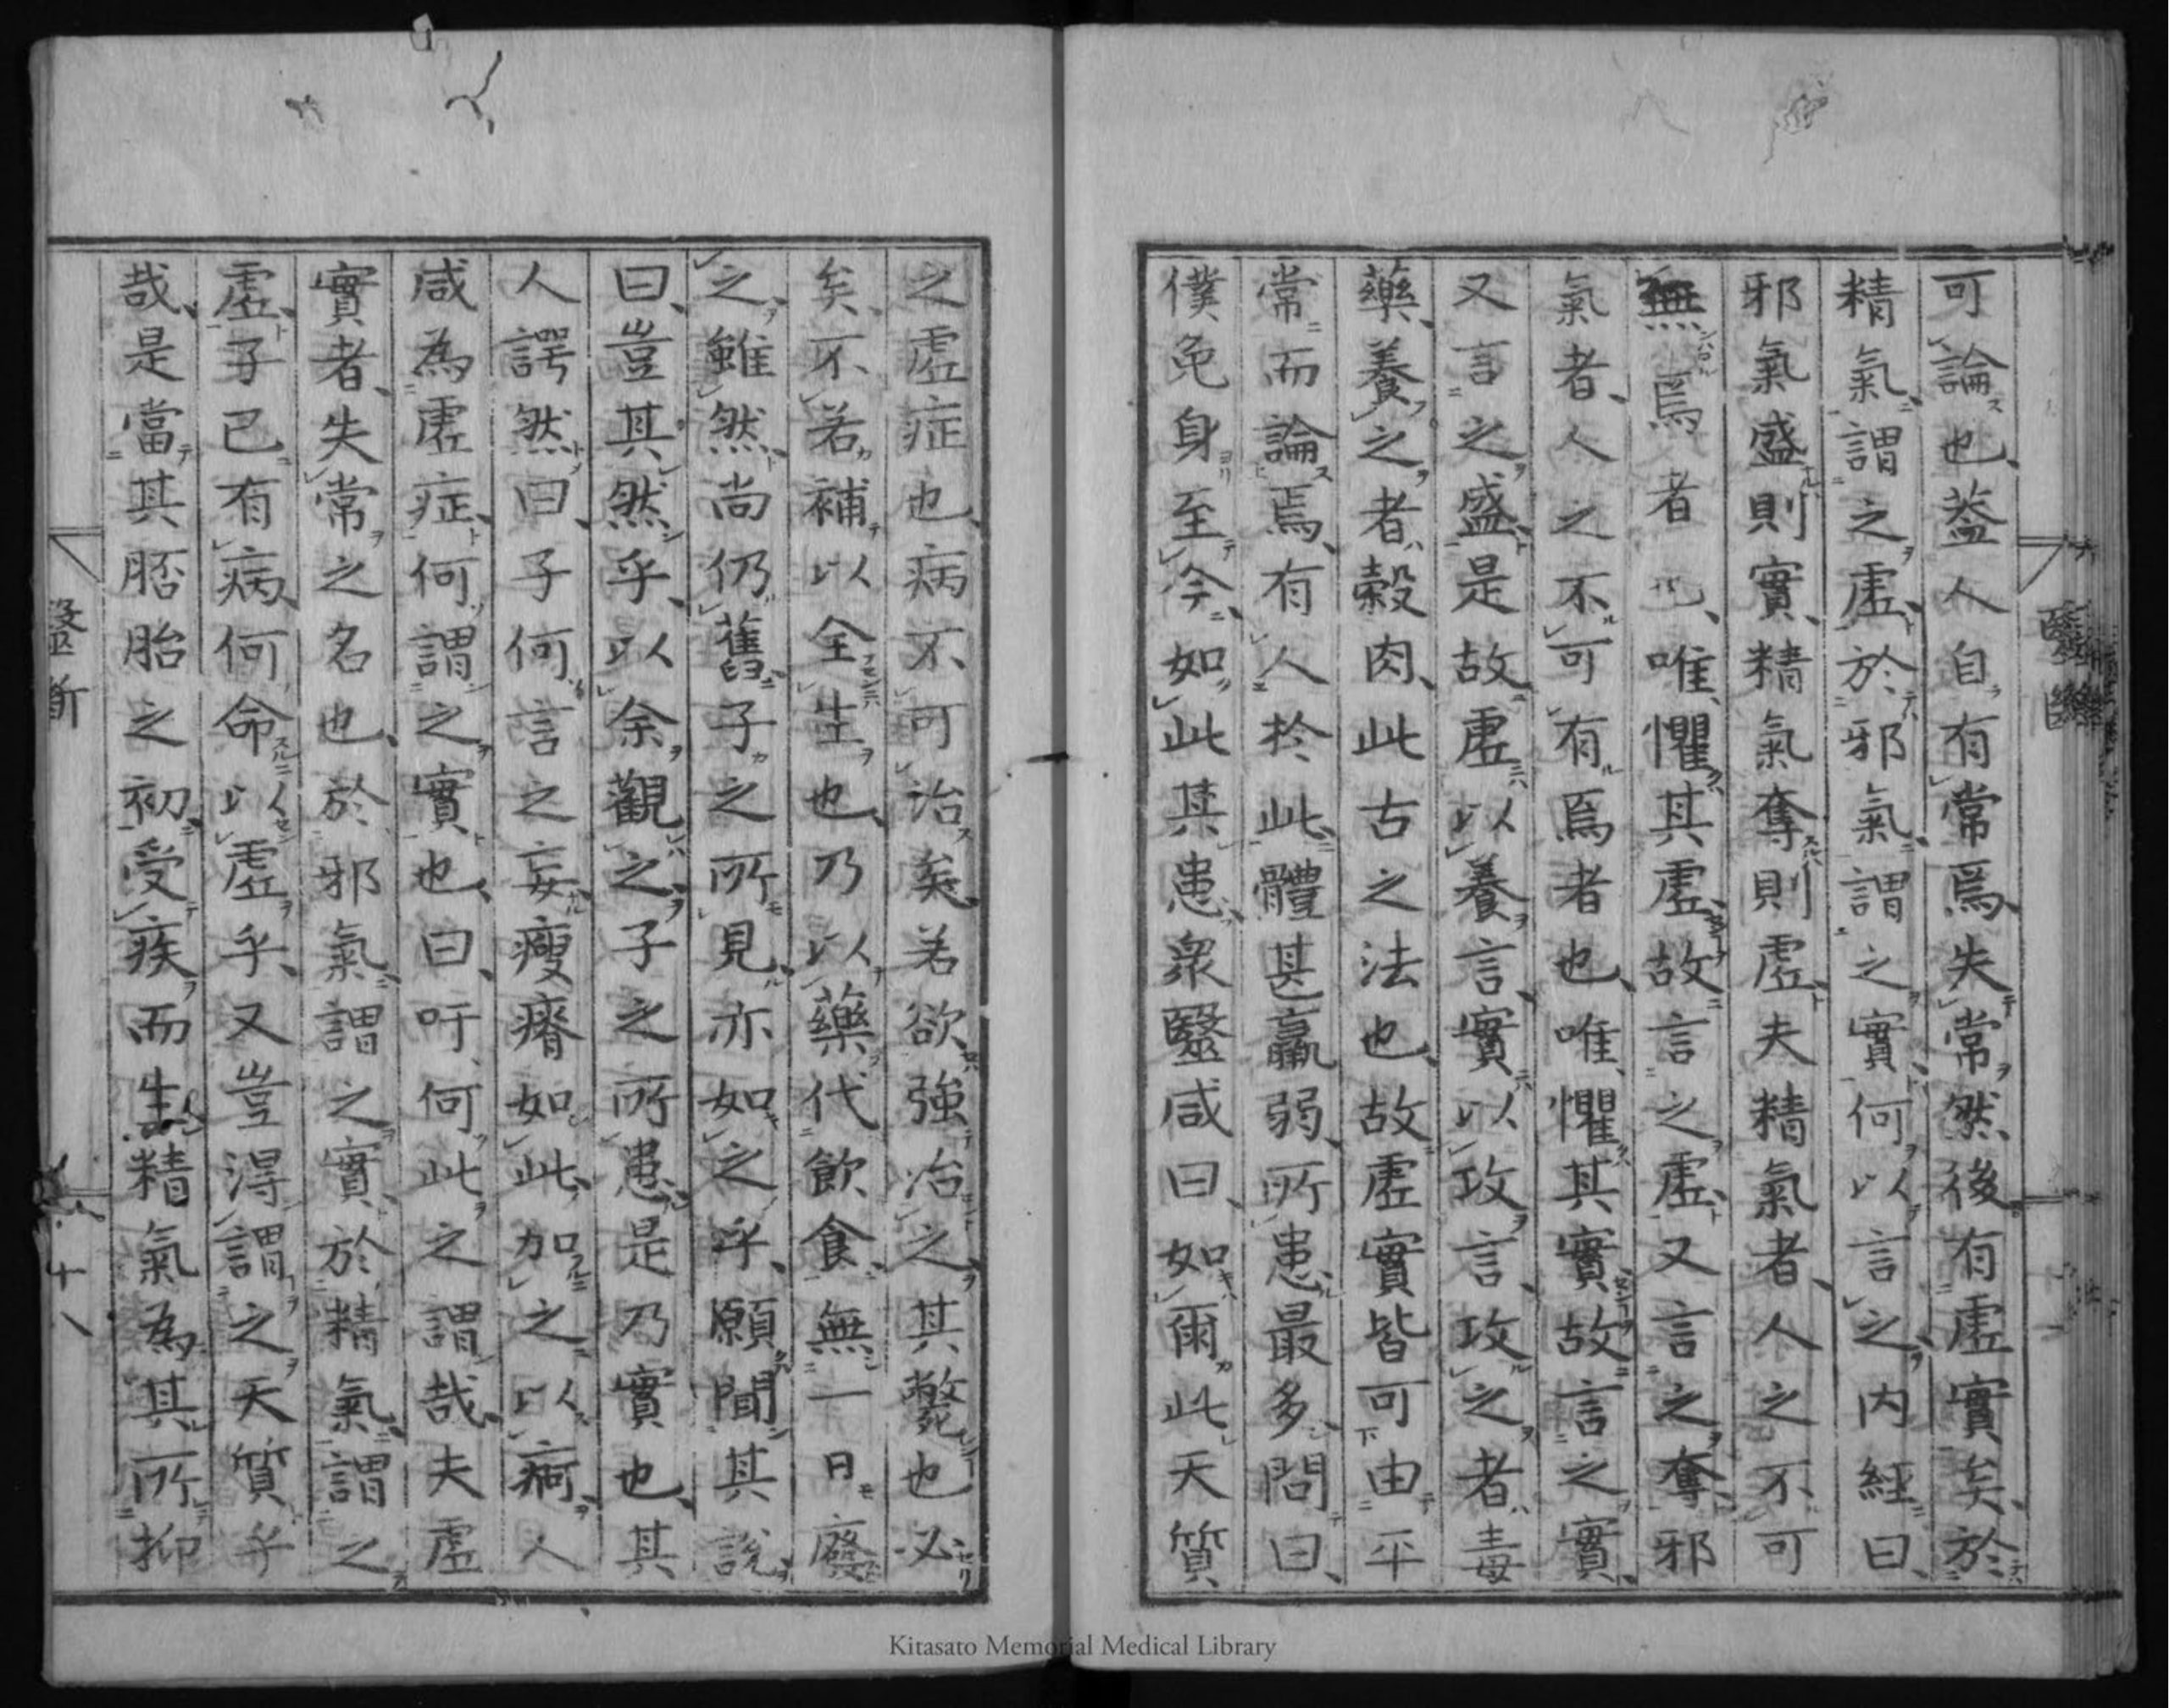 可論也、蓋人自有常焉、失常然後有虛實矣、於
精氣、謂之虛、於邪氣、謂之實、何以言之、内經曰、
邪氣盛則實、精氣奪則虛、夫精氣者、人之不可
無焉者也、唯懼其虛、故言之虛、又言之奪、邪
氣者、人之不可有焉者也、唯懼其實、故言之實、
又言之盛、是故虛以養言、實以攻言、攻之者、毒
藥、養之者、穀肉、此古之法也、故虛實皆可由平
常而論焉、有人於此、體甚羸弱、所患最多、問曰、
僕免身至今、如此其患、衆醫咸曰、如爾此天質
之虛症也、病不可治矣、若欲強治之、其斃也必
矣、不若補以全生也、乃以藥代飲食、無一日廢
之、雖然尚仍舊、子之所見、亦如之乎、願聞其説、
曰、豈其然乎、以余觀之、子之所患、是乃實也、其
人諤然曰、子何言之妄、瘦瘠如此、加之以痾、人
咸為虛症、何謂之實也、曰、吁、何此之謂哉、夫虛
實者、失常之名也、於邪氣謂之實、於精氣、謂之
虛、子已有病、何命以虛乎、又豈得謂之天質乎
哉、是當其胚胎之初、受疾而生、精氣為其所抑
醫斷
十八
Kitasato Memorial Medical Library